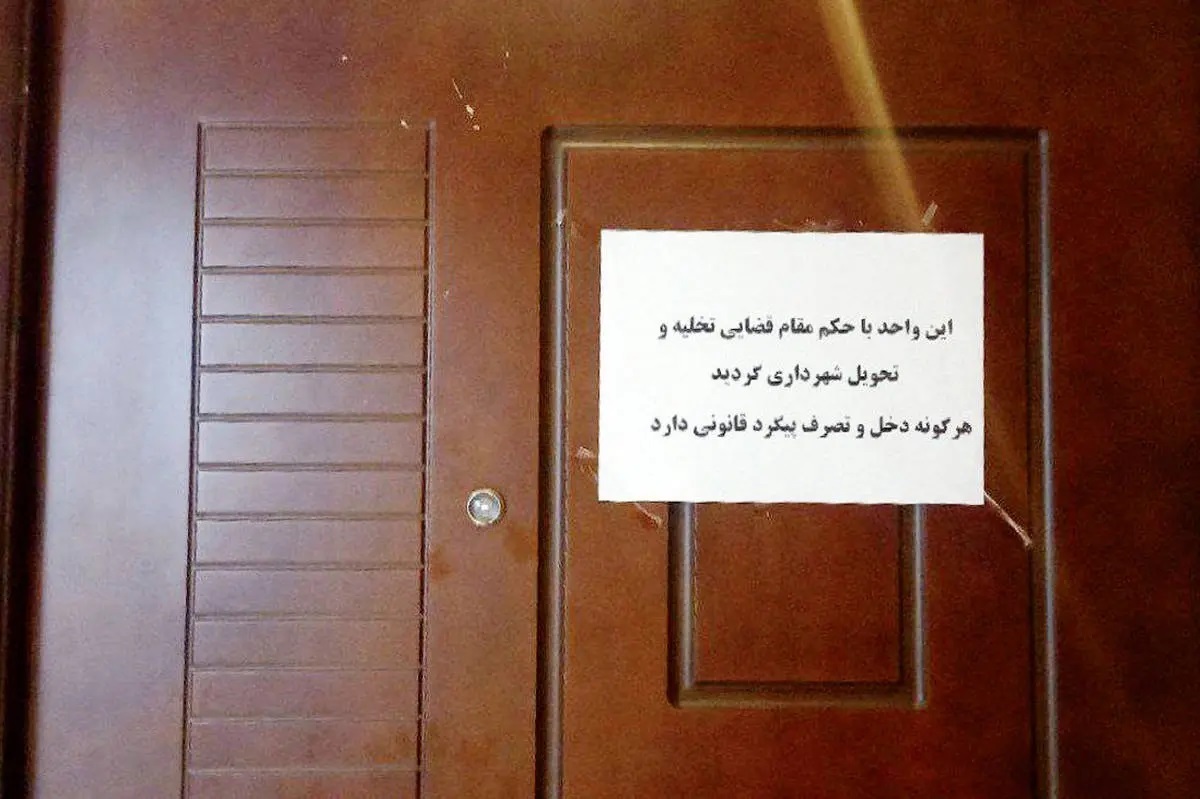 این واحد با حکم مقام قضایی تخلیه و
تحویل شهرداری گردید
هرگونه دخل و تصرف پیگرد قانونی دارد